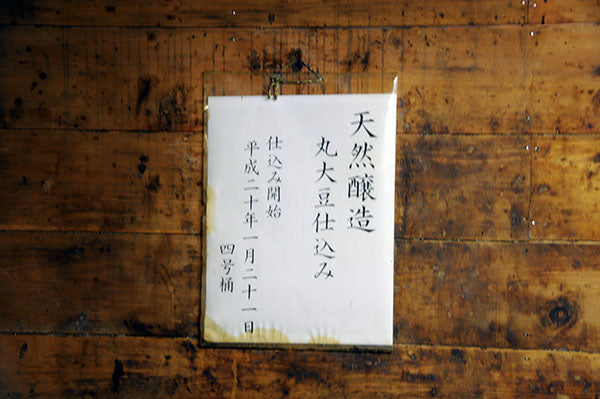 天然醸造
丸大豆仕込み
仕込み開始
平成二十年一月二十一日
四号桶